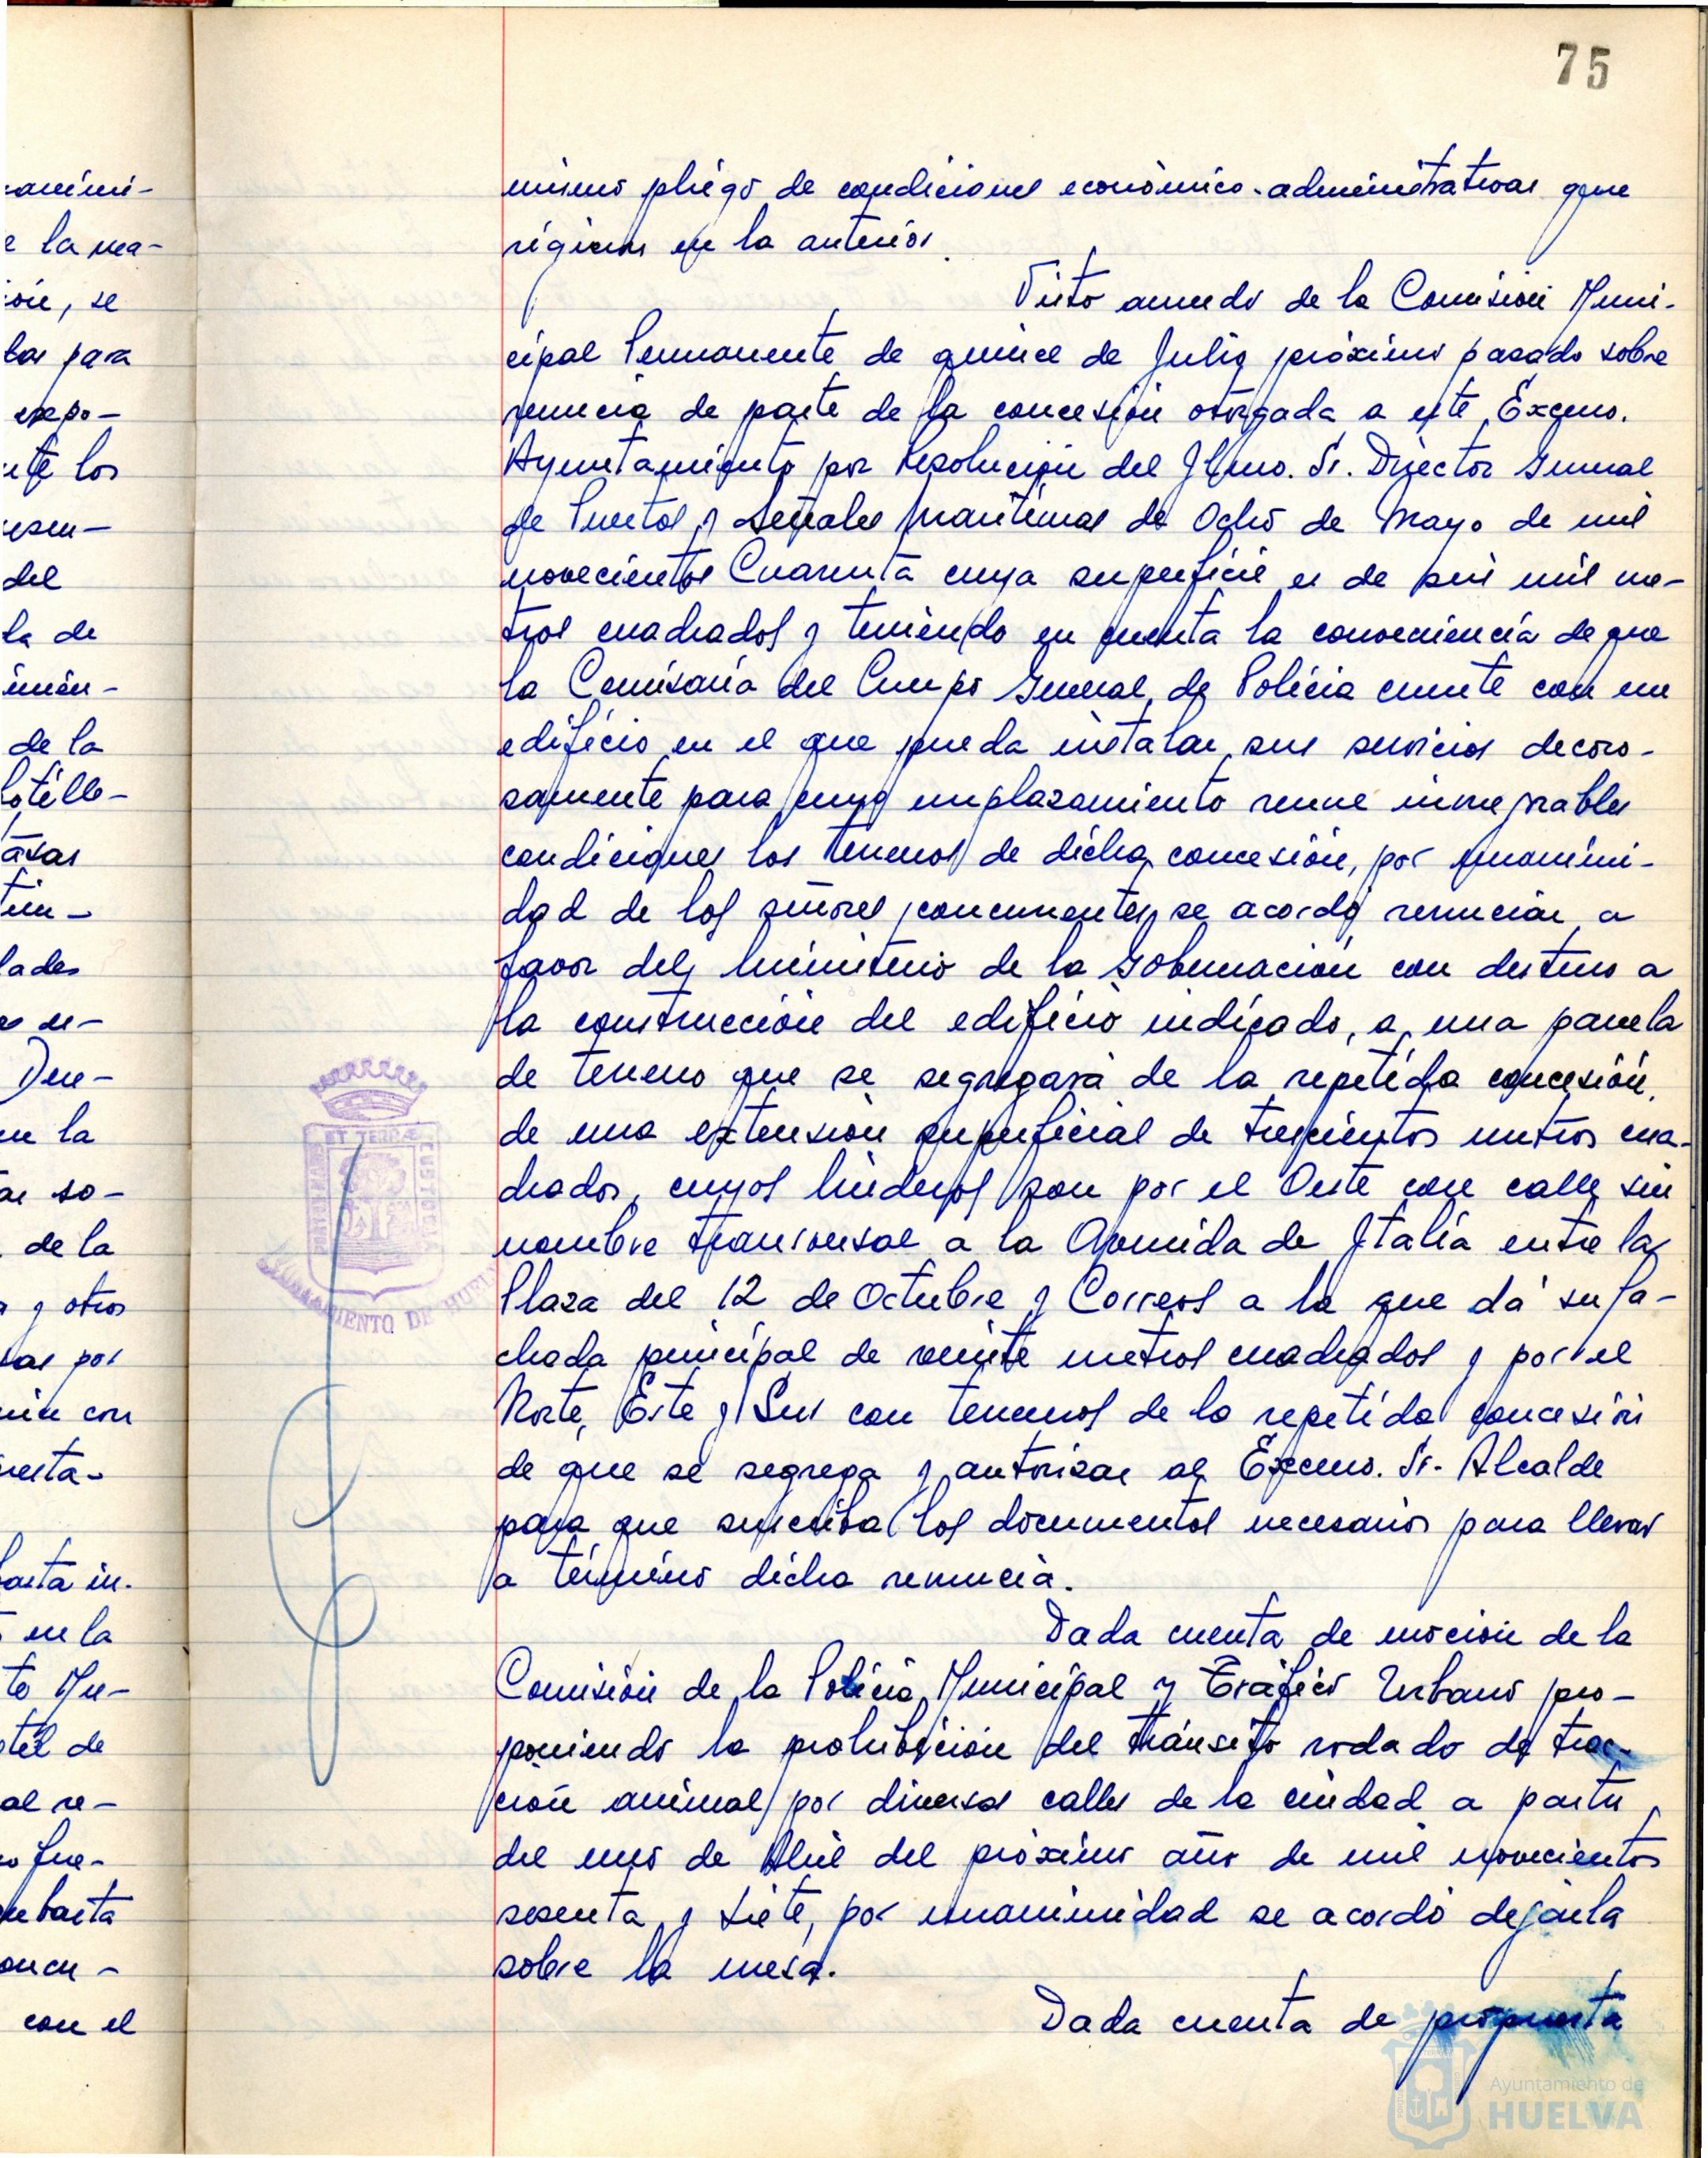 75
mismo pliego de condiciones económico-administrativas que
rigieron en la anterior.
Visto acuerdo de la Comisión Muni-
cipal Permanente de quince de Julio próximo pasado sobre
renuncia de parte de la concesión otorgada a este Excmo.
Ayuntamiento por Resolución del Iltmo. Sr. Director General
de Puertos y Señales Marítimas de Ocho de Mayo de mil
novecientos Cuarenta cuya superficie es de seis mil me-
tros cuadrados y teniendo en cuenta la conveniencia de que
la Comisaría del Cuerpo General de Policía cuente con un
edificio en el que pueda instalar sus servicios decoro-
samente para cuyo emplazamiento reune inmejorables
condiciones los terrenos de dicha concesión, por unanimi-
dad de los señores concurrentes, se acordó renunciar a
favor del Ministerio de la Gobernación con destino a
la construcción del edificio indicado, a una parcela
de terreno que se segregará de la repetida concesión,
de una extensión superficial de trescientos metros cua-
drados, cuyos linderos son por el Oeste con calle sin
nombre transversal a la Avenida de Italia entre la
Plaza del 12 de Octubre y Correos a la que dá su fa-
chada principal de veinte metros cuadrados y por el
Norte, Este y Sur con terrenos de la repetida concesión
de que se segrega y autorizar al Excmo. Sr. Alcalde
para que suscriba los documentos necesarios para llevar
a término dicha renuncia.
Dada cuenta de moción de la
Comisión de la Policía Municipal y Tráfico Urbano pro-
poniendo la prohibición del tránsito rodado de trac-
ción animal por diversas calles de la ciudad a partir
del uno de Abril del próximo año de mil novecientos
sesenta y siete, por unanimidad se acordó dejarla
sobre la mesa.
Dada cuenta de propuesta
e la ma-
ión, se
para
expo-
los
del
la de
de la
lades
en la
so-
de la
y otros
por
con
en la
de
al re-
con el
ET TERRAE
CUSTODIA
AYUNTAMIENTO DE HUELVA
Ayuntamiento de
HUELVA